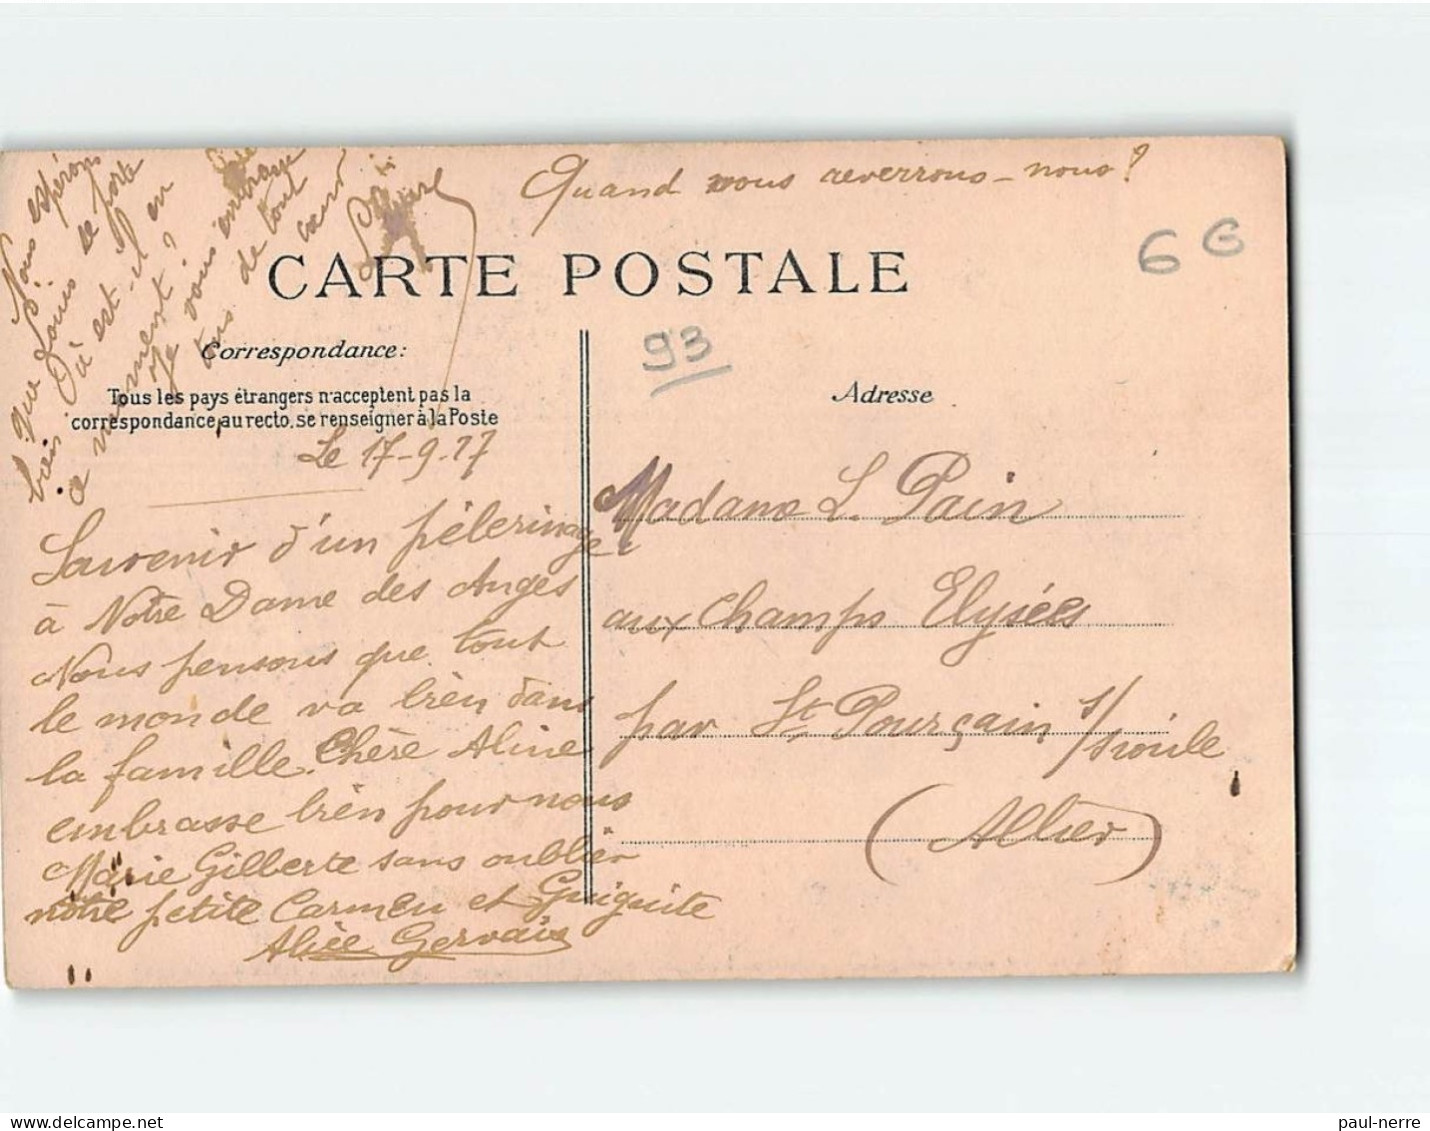 Quand nous reverrons-nous?
CARTE POSTALE
6 G
93
Correspondance:
Tous les pays étrangers n'acceptent pas la
correspondance au recto. se renseigner à la Poste
Adresse
Le 17-9-17
Souvenir d'un pélerinage
à Notre Dame des Anges
Nous pensons que tout
le monde va bien dans
la famille. Chère Aline
embrasse bien pour nous
Marie Gilberte sans oublier
notre petite Carmen et Guiguite
Alice Gervais
Nous espérons
que Louis se porte
bien Où est-il en
ce moment?
Je vous embrasse
tous de tout
cœur
Madame L. Pain
aux Champs Elysées
par St Pourçain s/
sioule
(Allier)
paul-nerre